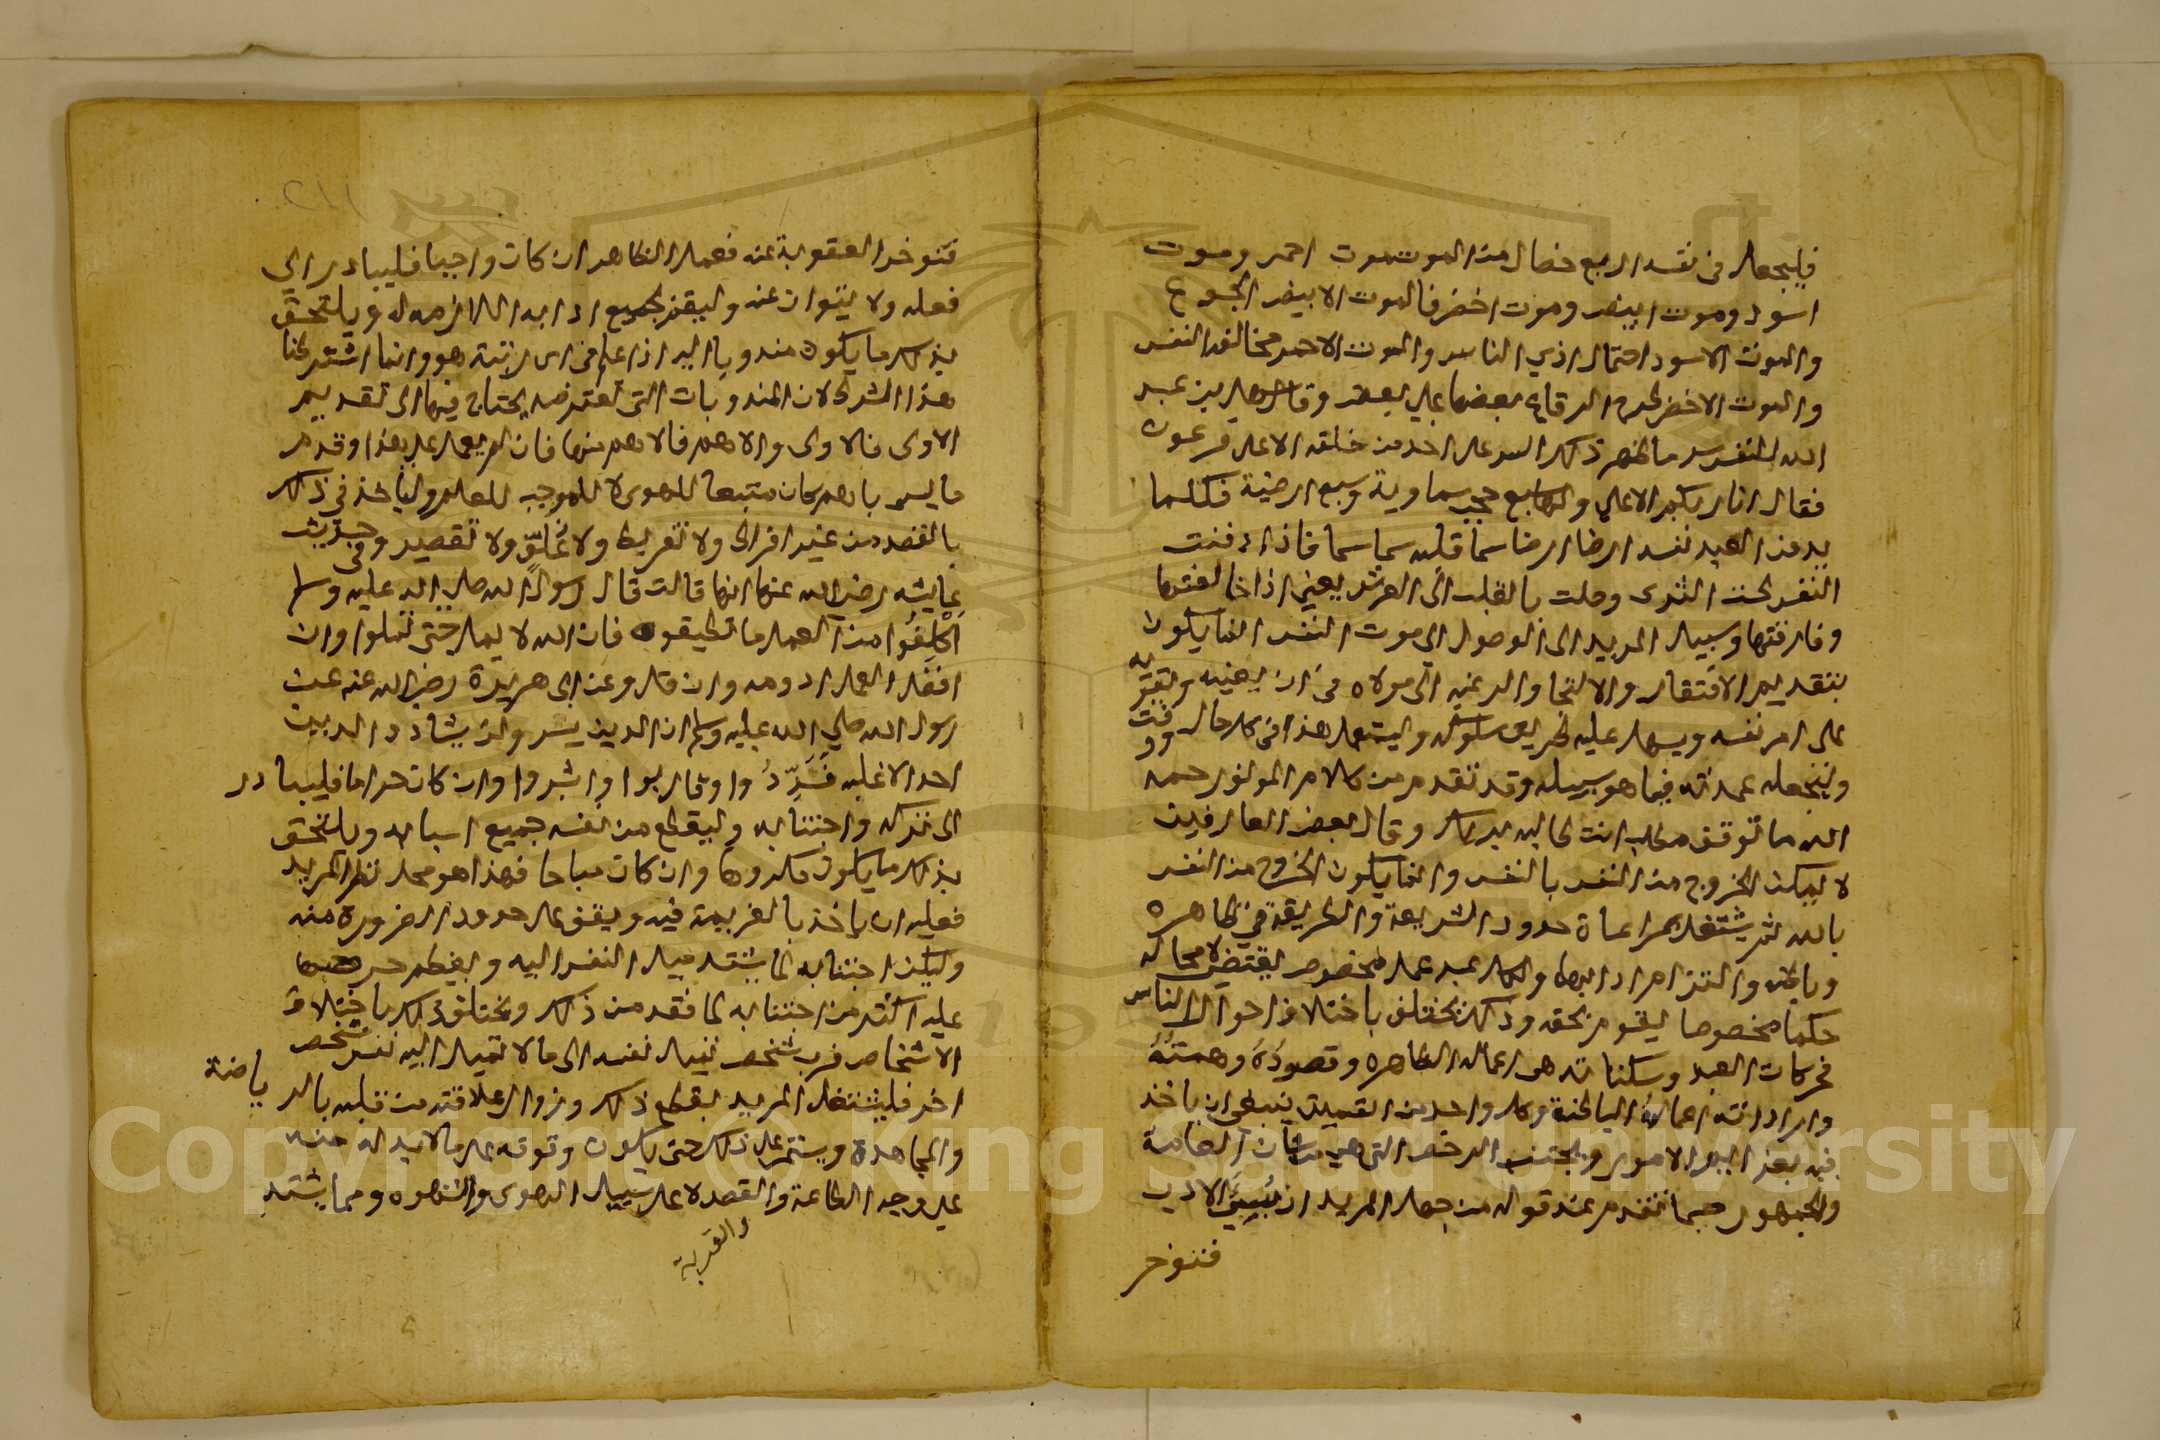 فليجعل في نفسه اربع خصال من الموت موت احمر وموت
اسود وموت ابيض وموت اخضر فالموت الابيض الجوع
والموت الاسود احتمال اذي الناس والموت الاحمر مخالفة النفس
والموت الاخضر طرح الرقاع بعضها علي بعض وقال سهل بن عبد
الله للنفس سر ما ظهر ذلك السر على احد من خلقه الا على فرعون
فقال انا ربكم الاعلي ولها سبع حجب سماوية وسبع ارضية فكلما
يدفن العبد نفسه ارضا ارضا سما قلبه سما سما فاذا دفنت
النفس تحت الثرى وصلت بالقلب الى العرش يعني اذا خالفتها
وفارقتها وسبيل المريد الى الوصول الى موت النفس انما يكون
بتقديم الافتقار والالتجا والرغبة الى مولاه في ان يعينه ويقويه
على امر نفسه ويسهل عليه طريق سلوكه وليستعمل هذا في كل حال ووقت
وليجعله عمدته فيما هو بسبيله وقد تقدم من كلام المولف رحمه
الله ما توقف مطلب انت طالبه بربك وقال بعض العارفين
لا يمكن الخروج من النفس بالنفس وانما يكون الخروج من النفس
بالله ثم يشتغل بمراعاة حدود الشريعة والطريقة في ظاهره
وباطنه والتزام ادابها ولكل عبد عمل مخصوص يقتضي لا محالة
حكما مخصوصا ليقوم بحقه وذلك يختلف باختلاف احوال الناس
فحركات العبد وسكناته هي اعماله الظاهره وقصوده وهمته
وارادته اعماله الباطنة وكل واحد من القميين ينبغي ان ياخذ
فيه بعزايم الامور ويجتنب الرخص التي هي من شان العامة
والجمهور حسبما تقدم عند قوله من جهل المريد ان يسيئ الادب
فتوخر
فتوخر العقوبة عنه فعمل الظاهر ان كان واجبا فليبادر الي
فعله ولا يتوان عنه وليقم بجميع ادابه اللازمه له ويلتحق
بذلك ما يكون مندوبا اليه اذا علم في اى رتبة هو وانما اشترطنا
هذا الشرط لان المندوبات التي تعترضه يحتاج فيها الى تقديم
الاولى فالاولى والاهم فالاهم منها فان لم يعمل على هذا وقدم
ما ليس باهم كان متبعا للهوى لا لموجب العلم وليأخذ في ذلك
بالقصد من غير افراط ولا تفريط ولا غلوّ ولا تقصير وفي حديث
عايشه رضي الله عنها انها قالت قال رسول الله صلي الله عليه وسلم
اكلَفُوا من العمل ما تطيقون فان الله لا يمل حتى تملوا وان
افضل العمل ادومه وان قل وعن ابى هريرة رضي الله عنه عن
رسول الله صلي الله عليه وسلم ان الدين يسر ولن يشادد الدين
احد الا غلبه فسَدِّدُوا وقاربوا وابشروا وان كان حراما فليبادر
الى تركه واجتنابه وليقطع من نفسه جميع اسبابه ويلتحق
بذلك ما يكون مكروها وان كان مباحا فهذا هو محل نظر المريد
فعليه ان ياخذ بالعزيمة فيه ويقف على حدود الضرورة منه
وليكن اجتنابه لما يشتد ميل النفس اليه ويعظم حرصها
عليه اكثر من اجتنابه لما فقد من ذلك ويختلف ذلك باختلاف
الاشخاص فرب شخص تميل نفسه الى ما لا تميل اليه نفس شخص
اخر فليشتغل المريد بقطع ذلك وزوال علاقته من قلبه بالرياضة
والمجاهدة ويستمر على ذلك حتى يكون وقوفه على ما لا بد له منه
علي وجه الطاعة والقصد لا على سبيل الهوى والشهوه ومما يشتد
والقربة